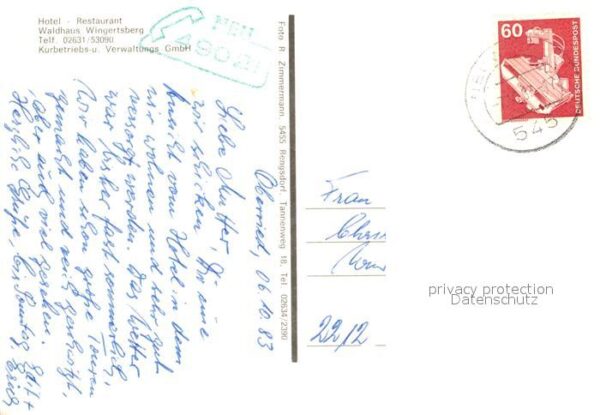 Hotel - Restaurant
Waldhaus Wingertsberg
Telf. 02631/53090
Kurbetriebs-u. Verwaltungs GmbH
NEU
Foto R. Zimmermann, 5455 Rengsdorf, Tannenweg 18, Tel. 02634/2390
60
DEUTSCHE BUNDESPOST
545
06 10 83
Liebe Mutter, Dir eine
wir schicken
Ansicht vom Hotel in dem
wir wohnen und sehr gut
versorgt werden. Das Wetter
war bisher fast sommerlich,
Wir haben schon große Touren
gemacht und
aber auch viel gesehen.
Herzliche Grüße, bis Sonntag
Frau
22/2
privacy protection
Datenschutz